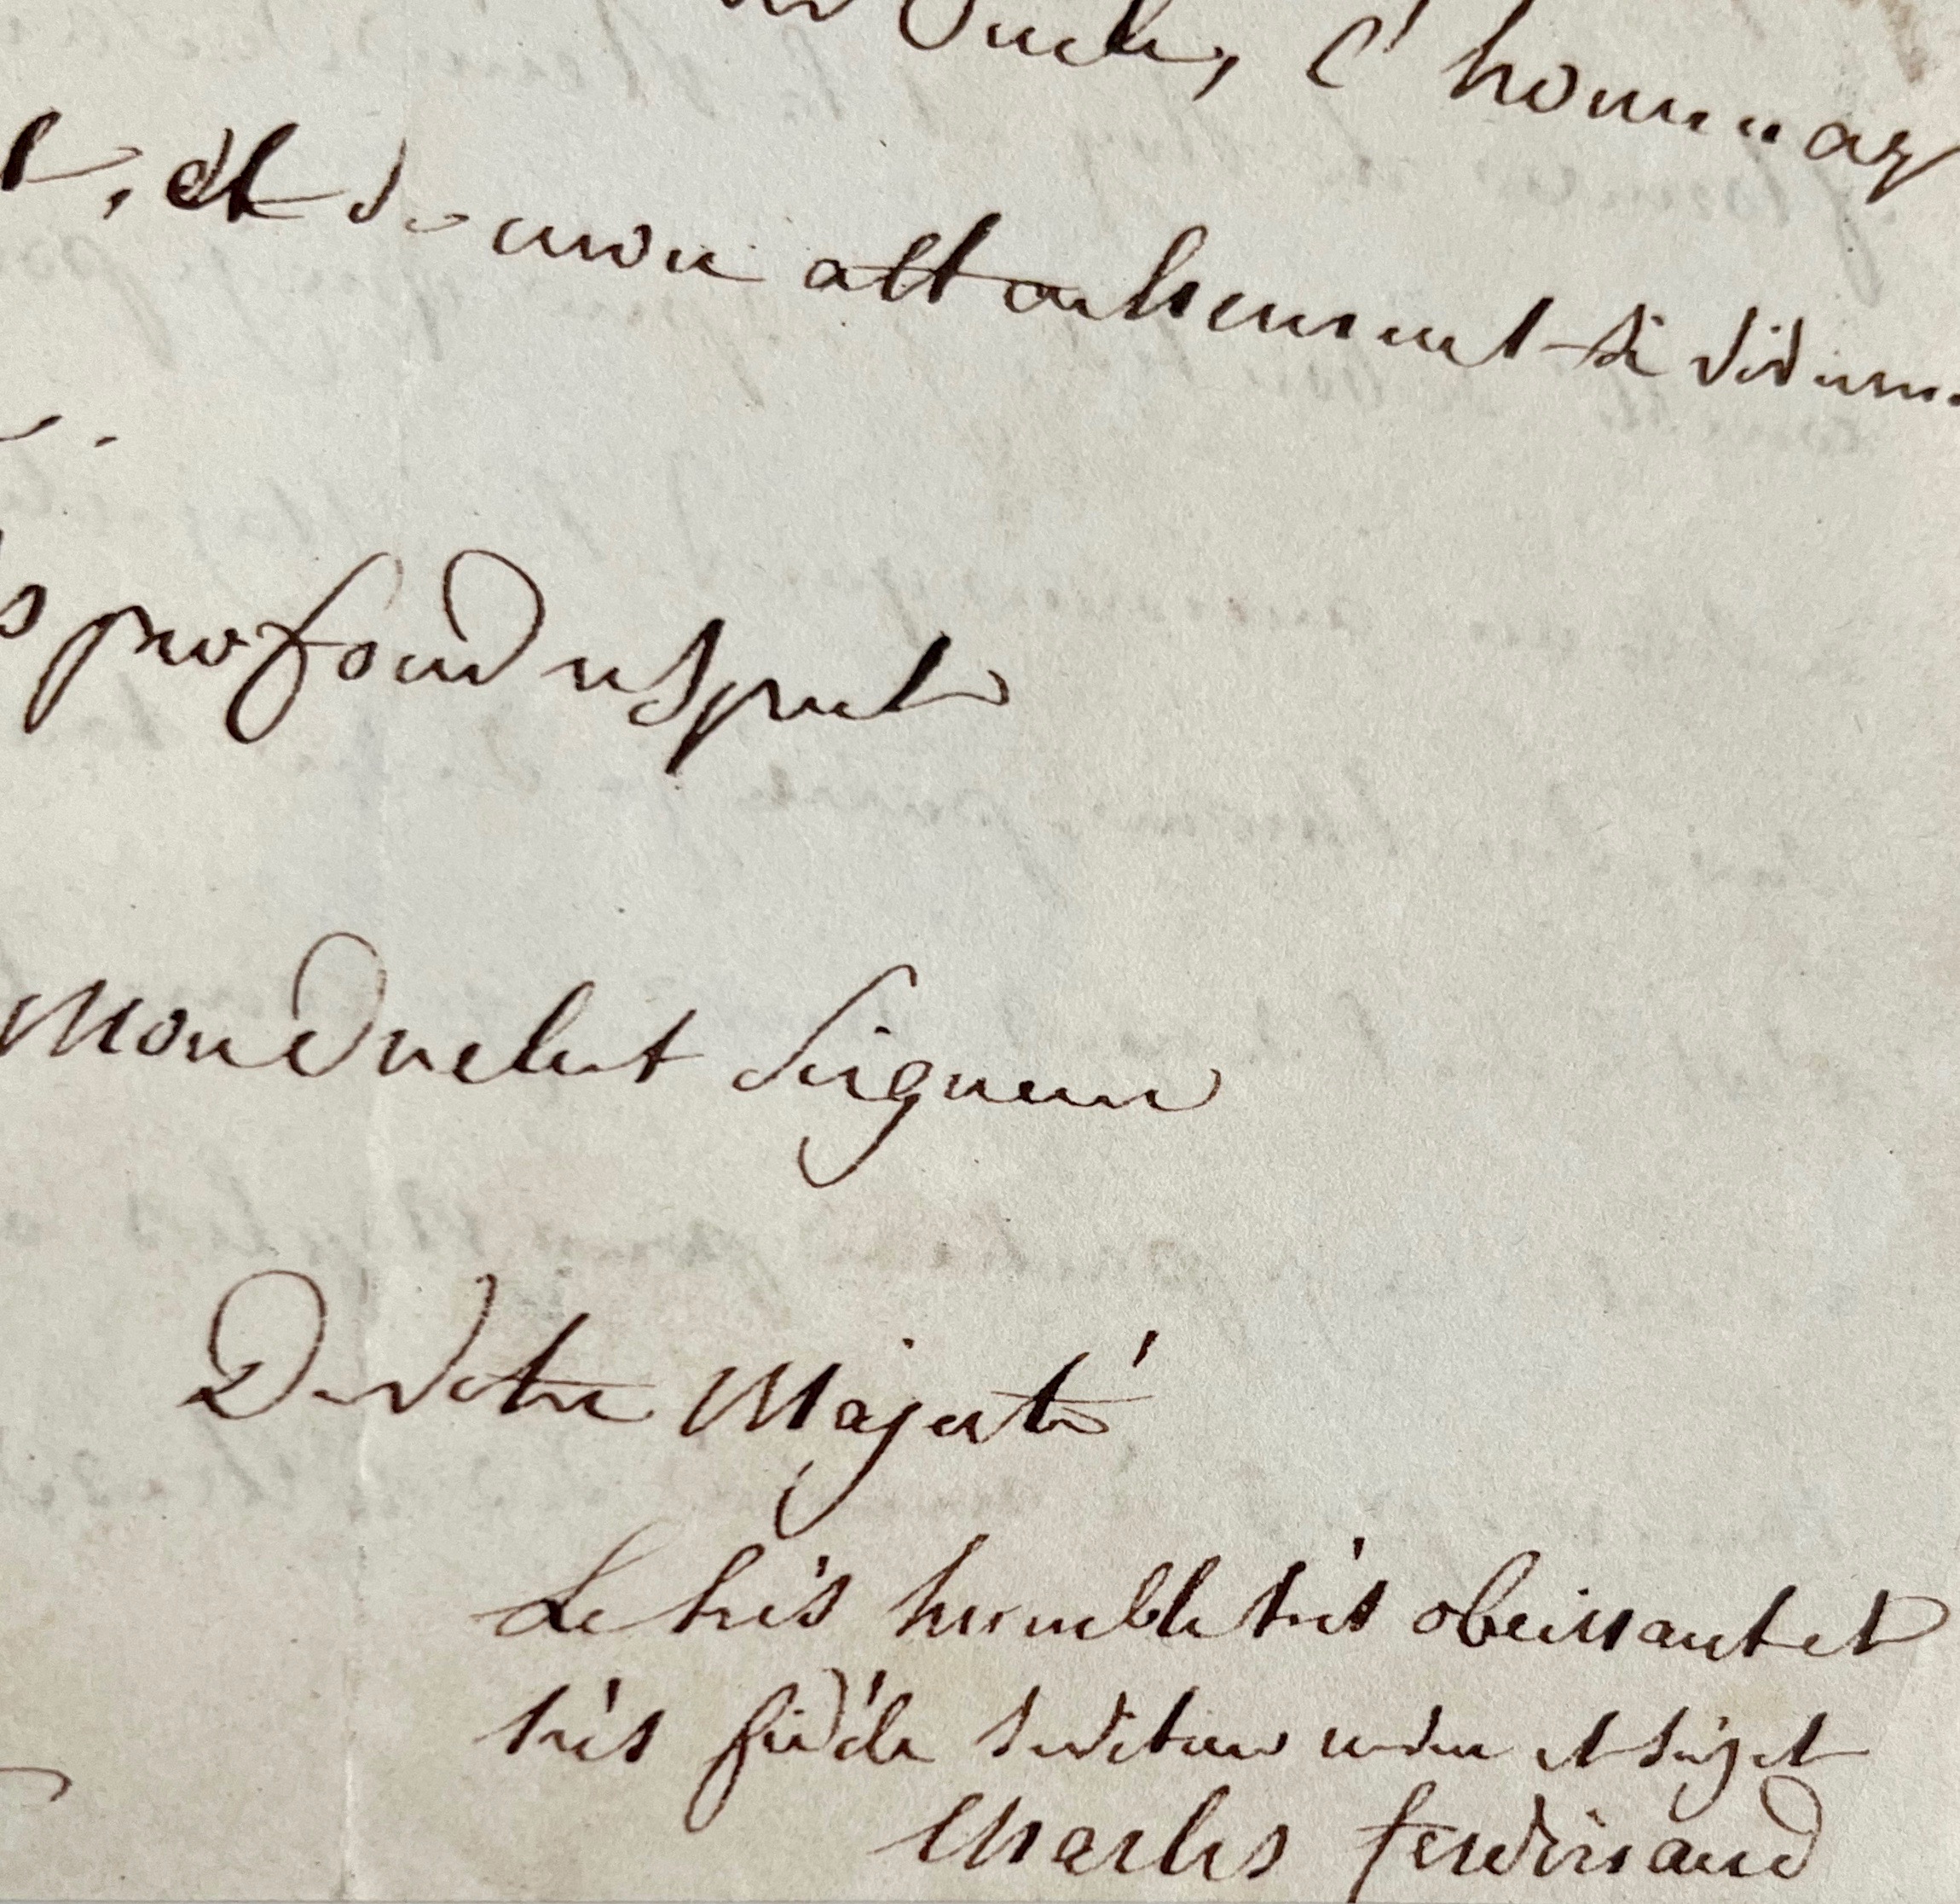 Oncle, l'hommag
, et de mon attachement si vivem
profond respect
Mon cher et Seigneur
De Votre Majesté
Le très humble très obeissant et
très fidèle serviteur neveu et sujet
Charles ferdinand